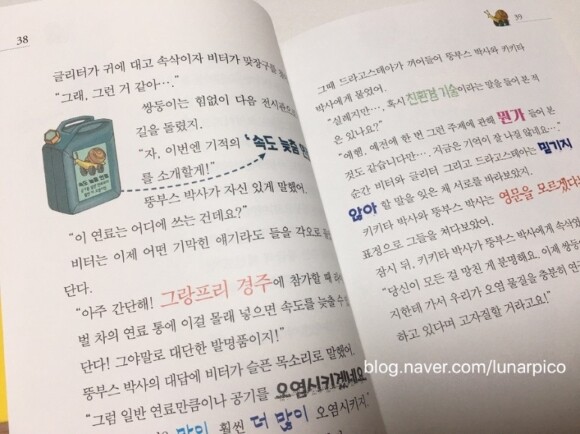 38
글리터가 귀에 대고 속삭이자 비터가 맞장구를
“그래, 그런 거 같아….”
쌍둥이는 힘없이 다음 전시관으로
길을 돌렸지.
“자, 이번엔 기적의 ‘속도 늦춤 연
를 소개할게!”
속도 늦춤 연료
뚱부스 박사가 자신 있게 말했어.
“이 연료는 어디에 쓰는 건데요?”
비터는 이제 어떤 기막힌 얘기라도 들을 각오로
단다.
“아주 간단해! 그랑프리 경주에 참가할 때
벌 차의 연료 통에 이걸 몰래 넣으면 속도를 늦출 수
단다! 그야말로 대단한 발명품이지!”
뚱부스 박사의 대답에 비터가 슬픈 목소리로 말했어.
“그럼 일반 연료만큼이나 공기를 오염시키겠네요
많이 훨씬 더 많이 오염시키지.
39
그때 드라고스테아가 끼어들어 뚱부스 박사와 카키타
박사에게 물었어.
“실례지만…, 혹시 친환경 기술이라는 말을 들어 본 적
은 있나요?”
“에헴, 예전에 한 번 그런 주제에 관해 뭔가 들어 본
것도 같습니다만…. 지금은 기억이 잘 나질 않네요…”
순간 비터와 글리터 그리고 드라고스테아는 믿기지
않아 할 말을 잊은 채 서로를 바라보았지.
카키타 박사와 뚱부스 박사는 영문을 모르겠다는
표정으로 그들을 쳐다보았어.
잠시 뒤, 카키타 박사가 뚱부스 박사에게 속삭였
“당신이 모든 걸 망친 게 분명해요. 이제 쌍둥
지한테 가서 우리가 오염 물질을 충분히 연구
하고 있다며 고자질할 거라고요!”
blog.naver.com/lunarpico